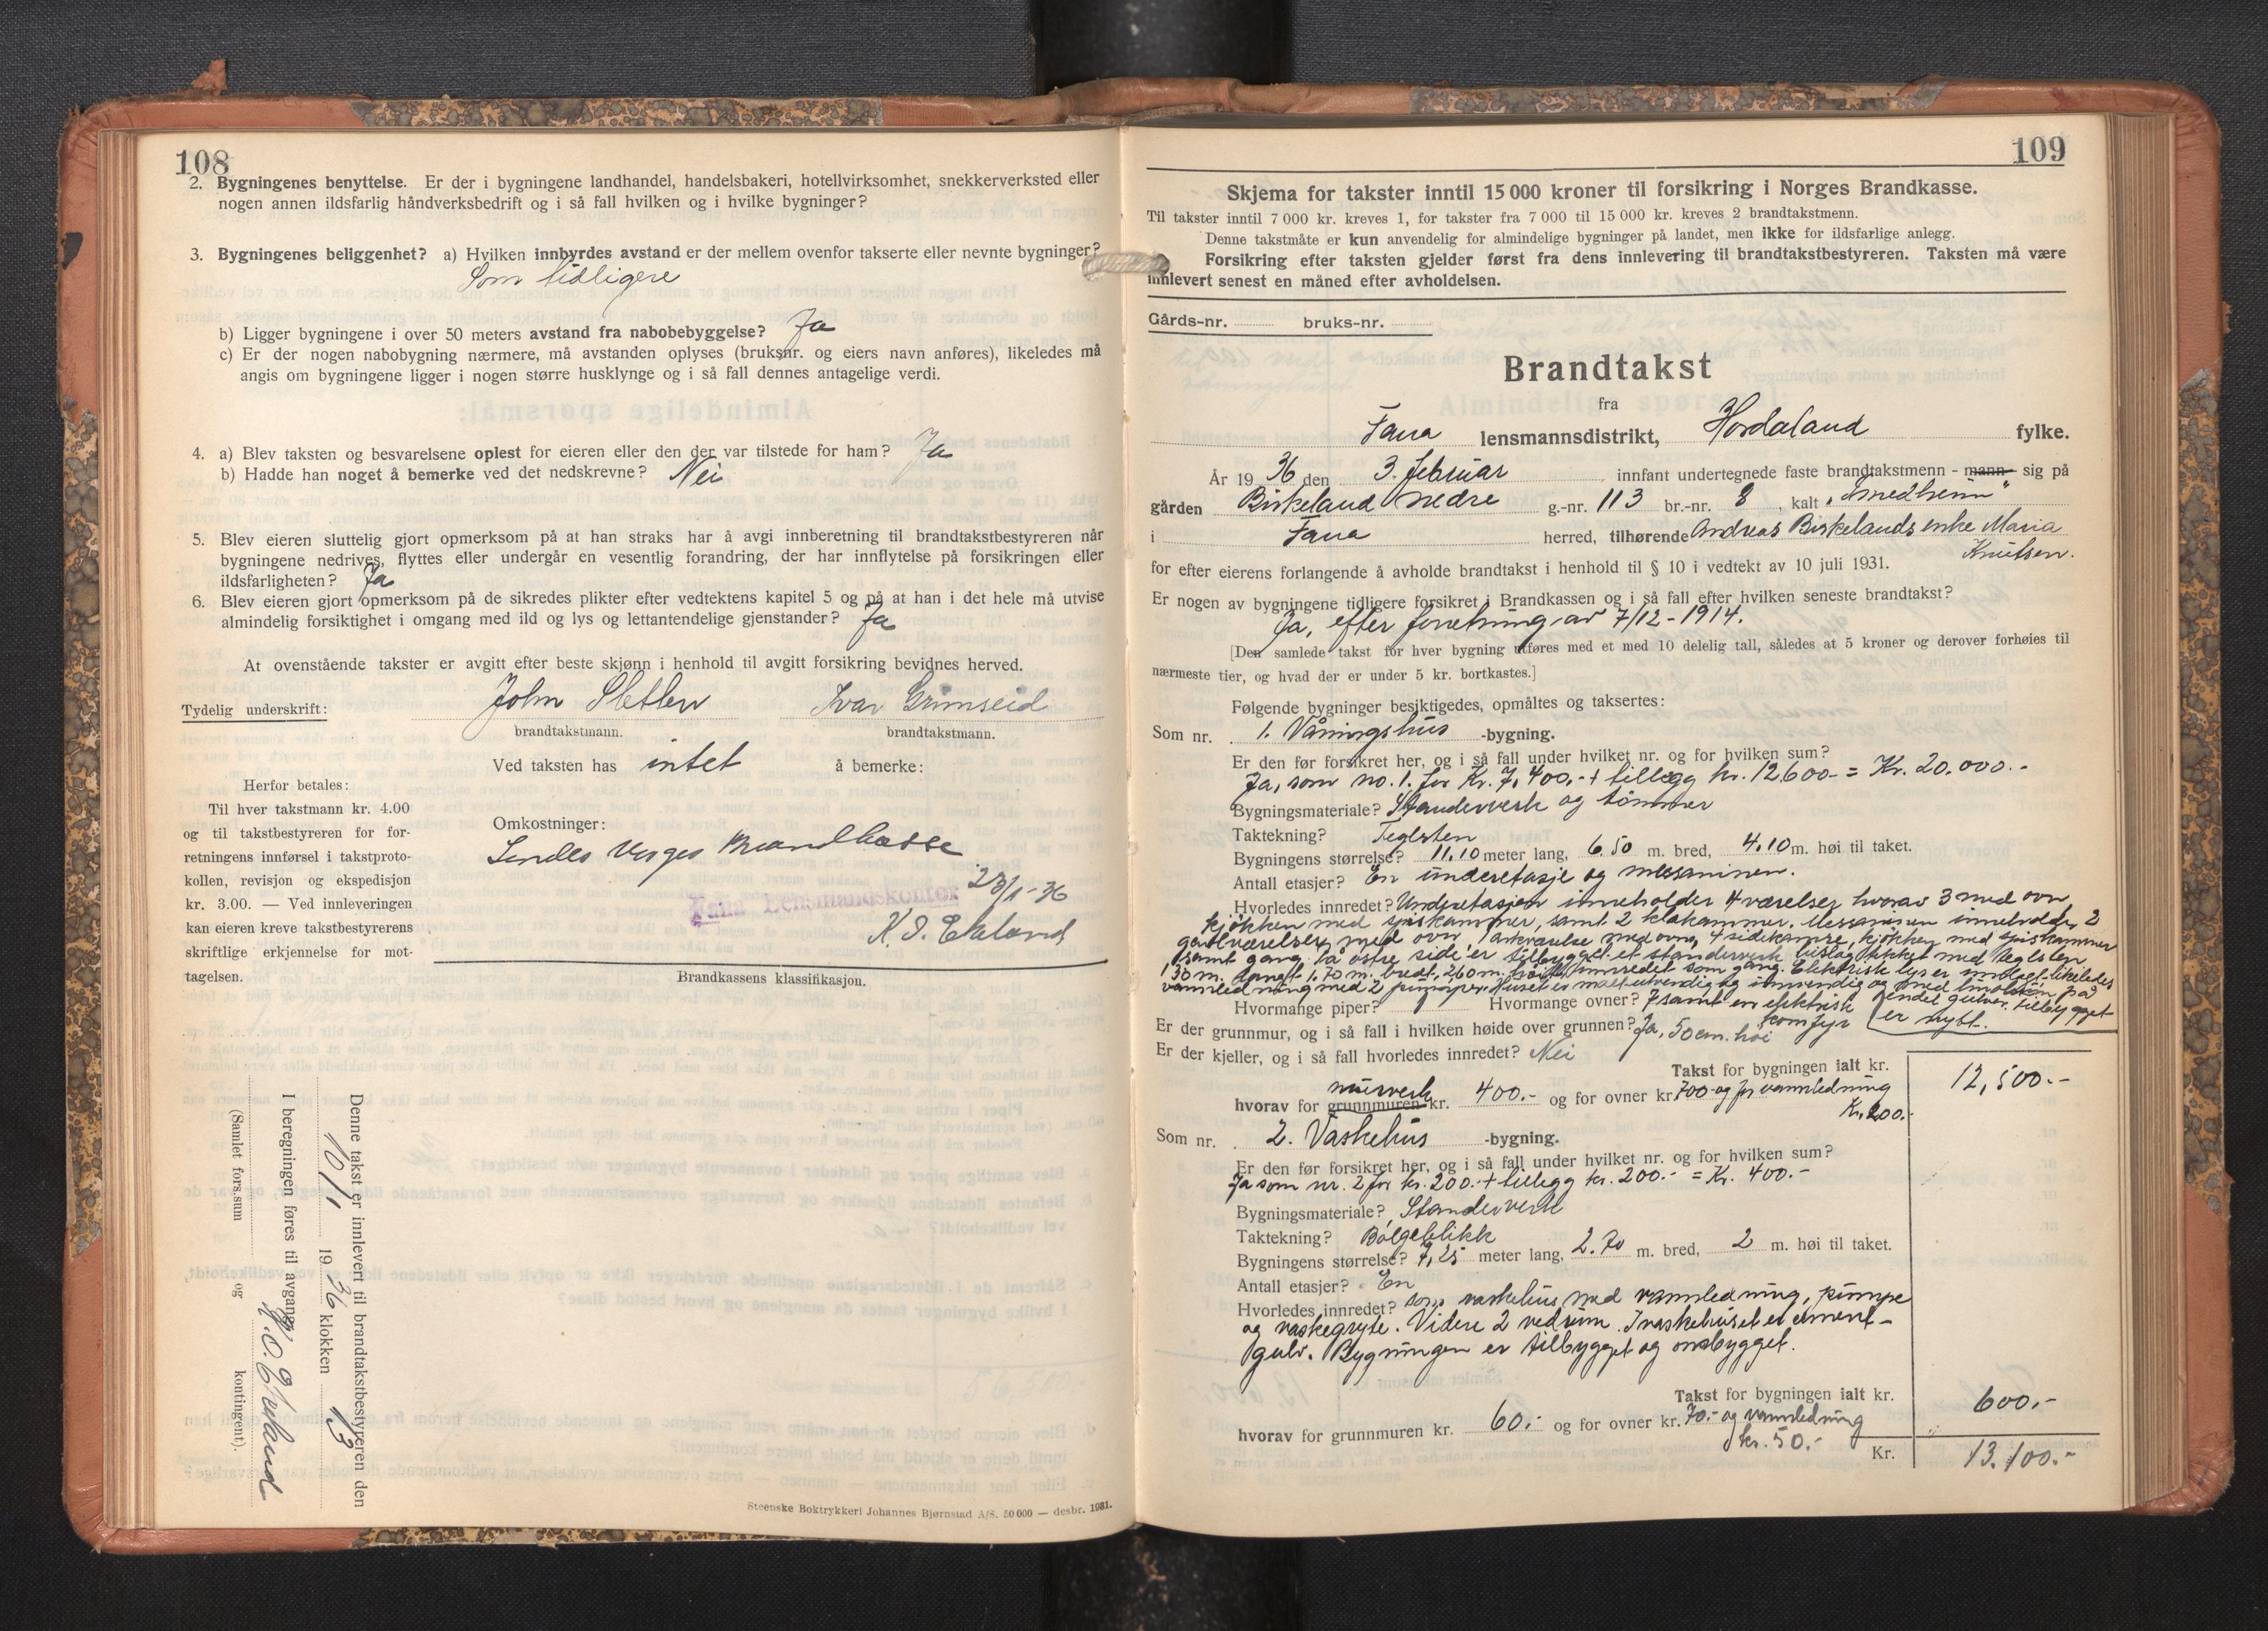 108
2. Bygningenes benyttelse. Er der i bygningene landhandel, handelsbakeri, hotellvirksomhet, snekkerverksted eller
nogen annen ildsfarlig håndverksbedrift og i så fall hvilken og i hvilke bygninger?
3. Bygningenes beliggenhet? a) Hvilken innbyrdes avstand er der mellem ovenfor takserte eller nevnte bygninger?
Som tidligere
b) Ligger bygningene i over 50 meters avstand fra nabobebyggelse? Ja
c) Er der nogen nabobygning nærmere, må avstanden oplyses (bruksnr. og eiers navn anføres), likeledes må
angis om bygningene ligger i nogen større husklynge og i så fall dennes antagelige verdi.
4. a) Blev taksten og besvarelsene oplest for eieren eller den der var tilstede for ham? Ja
b) Hadde han noget å bemerke ved det nedskrevne? Nei
5. Blev eieren sluttelig gjort opmerksom på at han straks har å avgi innberetning til brandtakstbestyreren når
bygningene nedrives, flyttes eller undergår en vesentlig forandring, der har innflytelse på forsikringen eller
ildsfarligheten? Ja
6. Blev eieren gjort opmerksom på de sikredes plikter efter vedtektens kapitel 5 og på at han i det hele må utvise
almindelig forsiktighet i omgang med ild og lys og lettantendelige gjenstander? Ja
At ovenstående takster er avgitt efter beste skjønn i henhold til avgitt forsikring bevidnes herved.
Tydelig underskrift: John Sletten Ivar Grimseid
brandtakstmann. brandtakstmann.
Ved taksten has intet å bemerke:
Herfor betales:
Til hver takstmann kr. 4.00
og til takstbestyreren for for-
retningens innførsel i takstproto-
kollen, revisjon og ekspedisjon
kr. 3.00. — Ved innleveringen
kan eieren kreve takstbestyrerens
skriftlige erkjennelse for mot-
tagelsen.
Omkostninger:
Sendes Norges Brandkasse
Fana Lensmandskontor 23/1-36
K. O. Ekeland
Brandkassens klassifikasjon.
Denne takst er innlevert til brandtakstbestyreren den
10/1 1936 klokken 13
I beregningen føres til avgang:
K. O. Ekeland
(Samlet fors.sum og kontingent).
Steenske Boktrykkeri Johannes Bjørnstad A/S. 50 000 — desbr. 1931.
109
Skjema for takster inntil 15 000 kroner til forsikring i Norges Brandkasse.
Til takster inntil 7 000 kr. kreves 1, for takster fra 7 000 til 15 000 kr. kreves 2 brandtakstmenn.
Denne takstmåte er kun anvendelig for almindelige bygninger på landet, men ikke for ildsfarlige anlegg.
Forsikring efter taksten gjelder først fra dens innlevering til brandtakstbestyreren. Taksten må være
innlevert senest en måned efter avholdelsen.
Gårds-nr. bruks-nr.
Brandtakst
fra
Fana lensmannsdistrikt, Hordaland fylke.
År 1936 den 3. februar innfant undertegnede faste brandtakstmenn - mann sig på
gården Birkeland nedre g.-nr. 113 br.-nr. 8, kalt „Smedheim"
i Fana herred, tilhørende Andreas Birkelands enke Maria
Knutsen.
for efter eierens forlangende å avholde brandtakst i henhold til § 10 i vedtekt av 10 juli 1931.
Er nogen av bygningene tidligere forsikret i Brandkassen og i så fall efter hvilken seneste brandtakst?
Ja, efter forretning av 7/12-1914.
[Den samlede takst for hver bygning utføres med et med 10 delelig tall, således at 5 kroner og derover forhøies til
nærmeste tier, og hvad der er under 5 kr. bortkastes.]
Følgende bygninger besiktigedes, opmåltes og taksertes:
Som nr. 1. Våningshus -bygning.
Er den før forsikret her, og i så fall under hvilket nr. og for hvilken sum?
Ja, som no. 1. for Kr. 7,400.- + tillegg kr. 12600- = Kr. 20.000.-
Bygningsmateriale? Standerverk og tømmer
Taktekning? Teglsten
Bygningens størrelse? 11.10 meter lang, 6.50 m. bred, 4.10 m. høi til taket.
Antall etasjer? En underetasje og messaninen.
Hvorledes innredet? Underetasjen inneholder 4 værelser hvorav 3 med ovn,
kjøkken med spiskammer, samt 2 klækammer. Messaninen inneholder 2
gavlværelser med ovn, 1 arkværelse med ovn, 4 sidekamre, kjøkken med spiskammer
samt gang. På østre side er tilbygget et standerverk bislag tekket med teglsten
1,30 m. langt 1.70 m. bredt, 2,60 m. høit, innredet som gang. Elektrisk lys er innlagt likeledes
vannledning med 2 pumper. Huset er malt utvendig og innvendig og med linoleum på
endel gulver. tilbygget
er nytt.
Hvormange piper? Hvormange ovner? 7 samt en elektrisk
komfyr
Er der grunnmur, og i så fall i hvilken høide over grunnen? Ja, 50 cm. høi
Er der kjeller, og i så fall hvorledes innredet? Nei
Takst for bygningen ialt kr. 12,500.-
murverk
hvorav for grunnmuren kr. 400.- og for ovner kr. 700- og for vannledning
Kr. 200.-
Som nr. 2. Vaskehus -bygning.
Er den før forsikret her, og i så fall under hvilket nr. og for hvilken sum?
Ja som nr. 2 for kr. 200.- + tillegg kr. 200.- = Kr. 400.-
Bygningsmateriale? Standerverk
Taktekning? Bølgeblikk
Bygningens størrelse? 7,25 meter lang, 2.70 m. bred, 2 m. høi til taket.
Antall etasjer? En
Hvorledes innredet? som vaskehus med vannledning, pumpe
og vaskegryte. Videre 2 vedrum. I vaskehuset er cement-
gulv. Bygningen er tilbygget og ombygget.
Takst for bygningen ialt kr. 600.-
hvorav for grunnmuren kr. 60.- og for ovner kr. 70.- og vannledning
kr. 50.-
Kr. 13.100.-